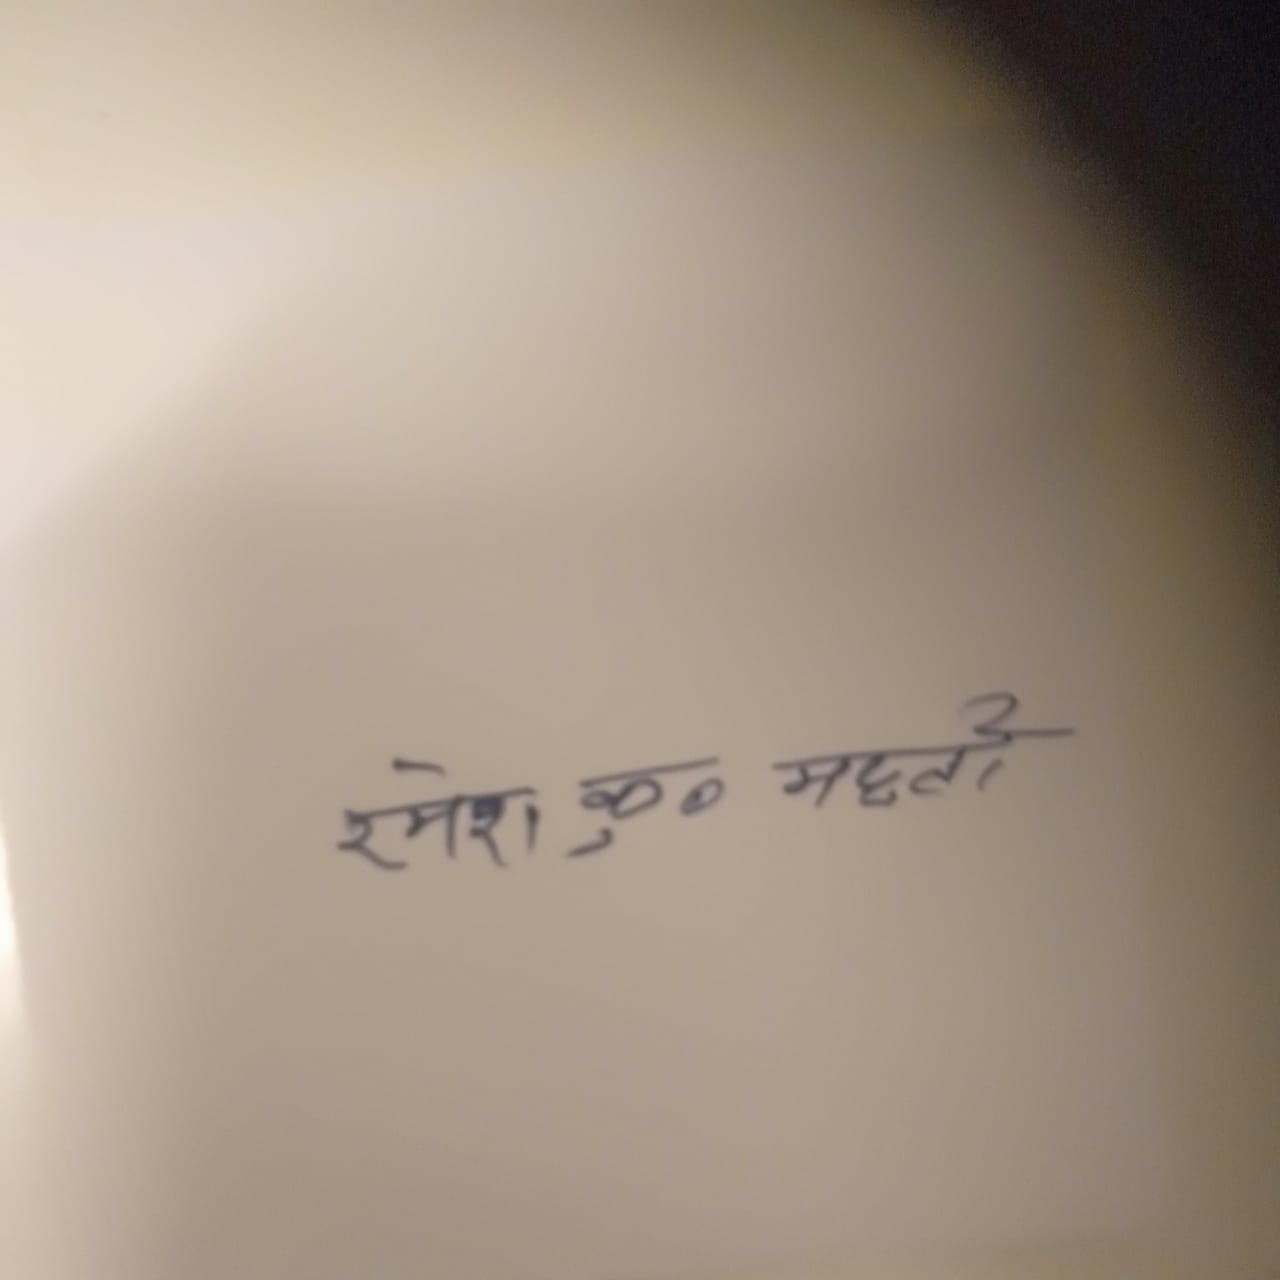 रमेश कु० महतो